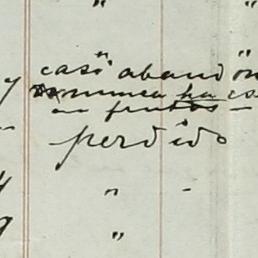 "
"
y casi aband on
nunca ha es
en frutos -
perdido
" -
"